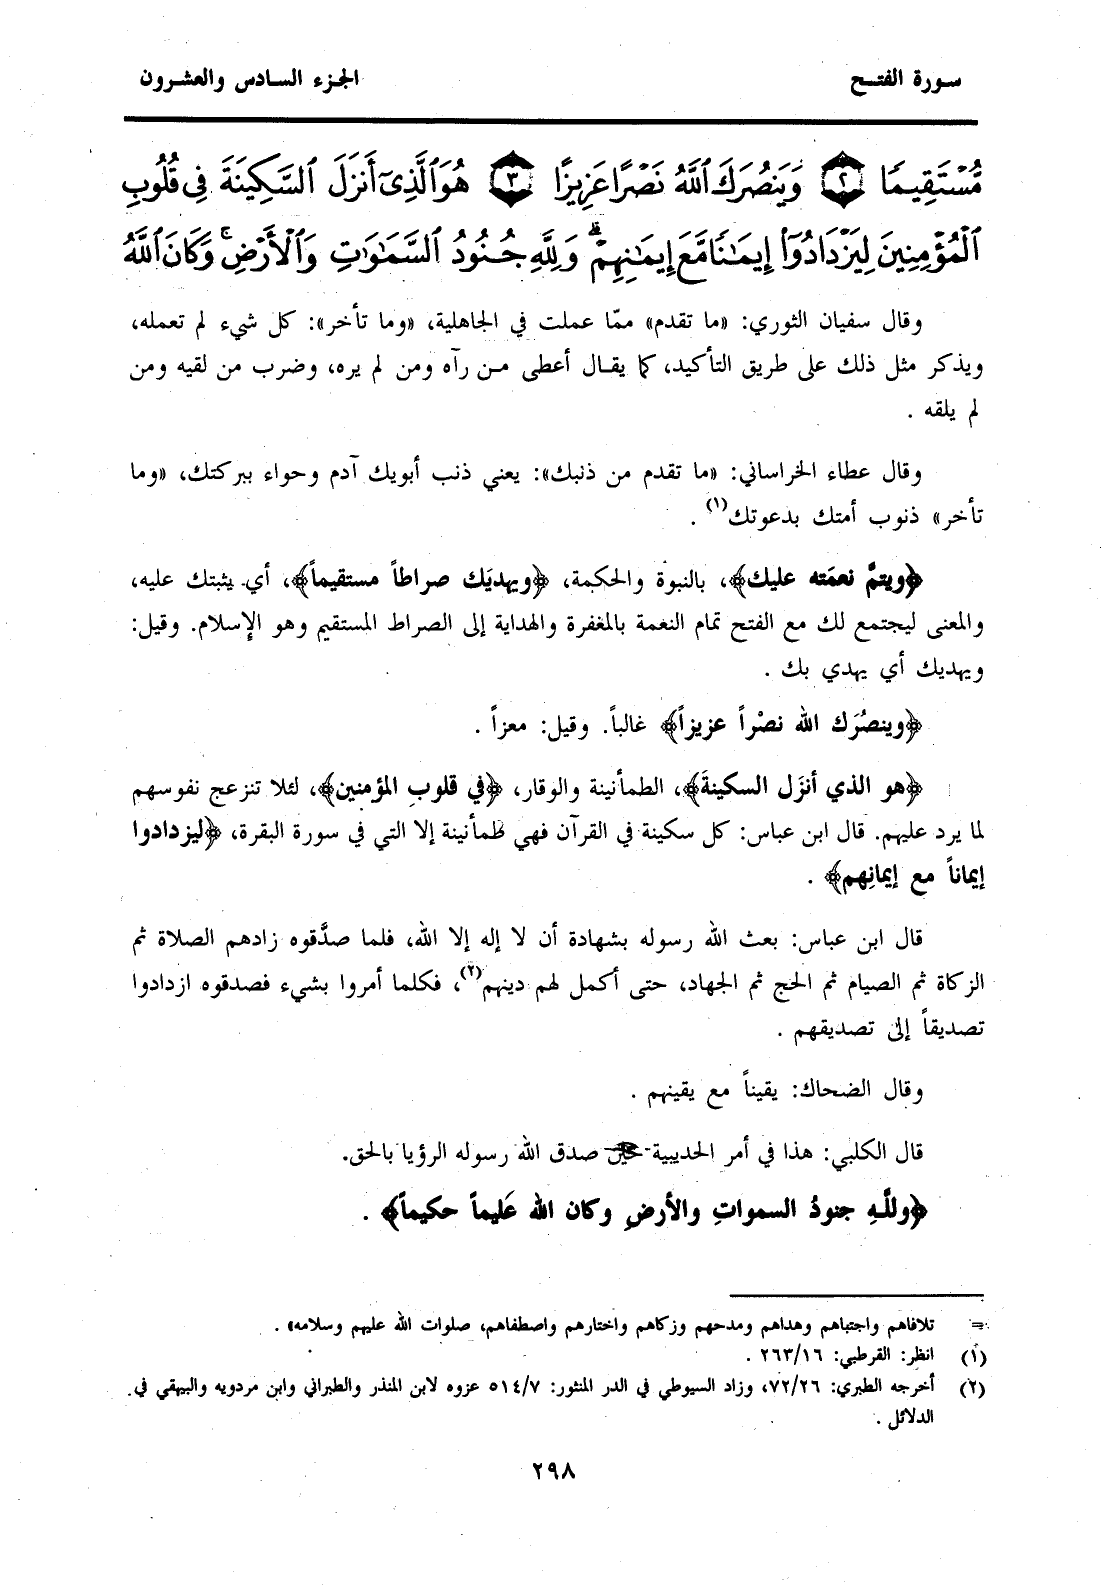 سورة الفتح
الجزء السادس والعشرون
مُّسْتَقِيمًا ٢ وَيَنصُرَكَ ٱللَّهُ نَصْرًا عَزِيزًا ٣ هُوَ ٱلَّذِىٓ أَنزَلَ ٱلسَّكِينَةَ فِى قُلُوبِ
ٱلْمُؤْمِنِينَ لِيَزْدَادُوٓا۟ إِيمَـٰنًا مَّعَ إِيمَـٰنِهِمْ ۗ وَلِلَّهِ جُنُودُ ٱلسَّمَـٰوَٰتِ وَٱلْأَرْضِ ۚ وَكَانَ ٱللَّهُ
وقال سفيان الثوري: «ما تقدم» ممّا عملت في الجاهلية، «وما تأخر»: كل شيء لم تعمله،
ويذكر مثل ذلك على طريق التأكيد، كما يقال أعطى من رآه ومن لم يره، وضرب من لقيه ومن
لم يلقه .
وقال عطاء الخراساني: «ما تقدم من ذنبك»: يعني ذنب أبويك آدم وحواء ببركتك، «وما
تأخر» ذنوب أمتك بدعوتك(١) .
﴿ويتمَّ نعمَته عليك﴾، بالنبوة والحكمة، ﴿ويهديَك صراطاً مستقيماً﴾، أي يثبتك عليه،
والمعنى ليجتمع لك مع الفتح تمام النعمة بالمغفرة والهداية إلى الصراط المستقيم وهو الإسلام. وقيل:
ويهديك أي يهدي بك .
﴿وينصُرَك الله نصْراً عزيزاً﴾ غالباً. وقيل: معزاً .
﴿هو الذي أنزَل السكينةَ﴾، الطمأنينة والوقار، ﴿في قلوب المؤمنين﴾، لئلا تنزعج نفوسهم
لما يرد عليهم. قال ابن عباس: كل سكينة في القرآن فهي طمأنينة إلا التي في سورة البقرة، ﴿ليزدادوا
إيماناً مع إيمانِهم﴾ .
قال ابن عباس: بعث الله رسوله بشهادة أن لا إله إلا الله، فلما صدَّقوه زادهم الصلاة ثم
الزكاة ثم الصيام ثم الحج ثم الجهاد، حتى أكمل لهم دينهم(٢)، فكلما أمروا بشيء فصدقوه ازدادوا
تصديقاً إلى تصديقهم .
وقال الضحاك: يقيناً مع يقينهم .
قال الكلبي: هذا في أمر الحديبية حين صدق الله رسوله الرؤيا بالحق.
﴿وللَّهِ جنودُ السمواتِ والأرضِ وكان الله عَليماً حكيماً﴾ .
= تلافاهم واجتباهم وهداهم ومدحهم وزكاهم واختارهم واصطفاهم، صلوات الله عليهم وسلامه» .
(١) انظر: القرطبي: ٢٦٣/١٦ .
(٢) أخرجه الطبري: ٧٢/٢٦، وزاد السيوطي في الدر المنثور: ٥١٤/٧ عزوه لابن المنذر والطبراني وابن مردويه والبيهقي في
الدلائل .
٢٩٨